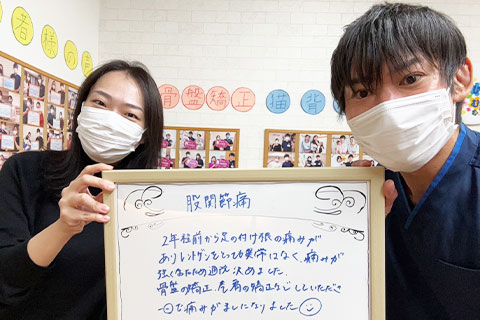 者様の声
骨盤矯正 猫背
股関節痛
2年位前から足の付け根の痛みが
ありレントゲンをとっても異常はなく、痛みが
強くなったため通院決めました。
骨盤の矯正、尾骨の矯正などしていただき
一回で痛みがましになりました